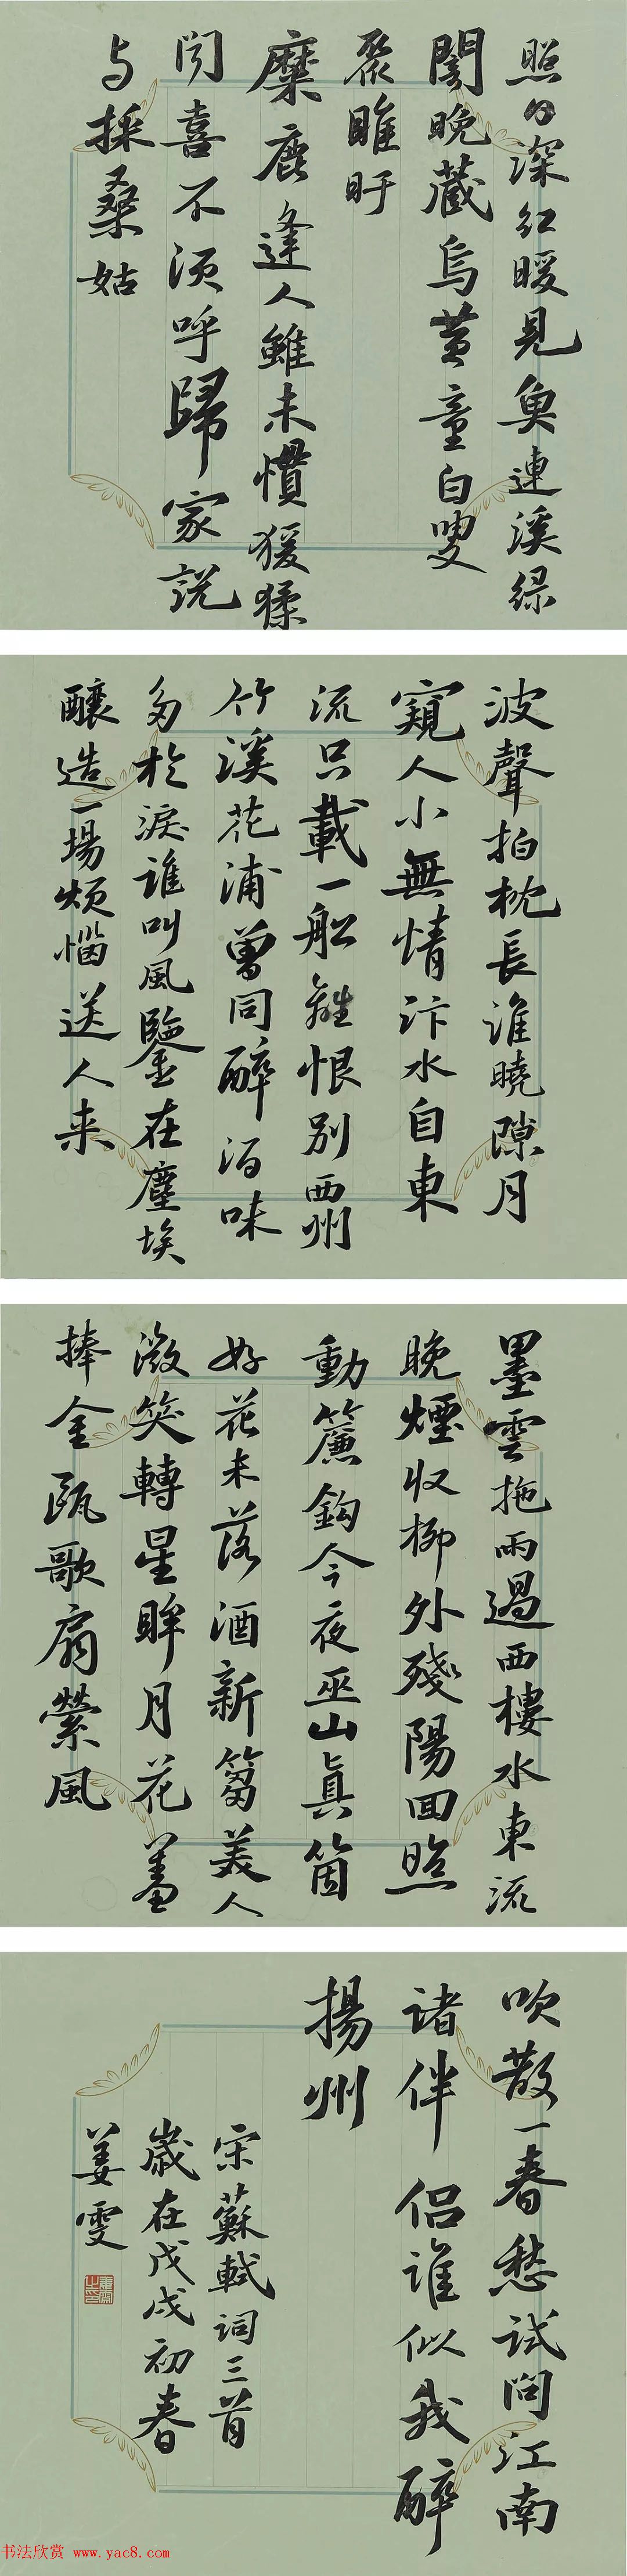 照日深紅暖見魚連溪綠
闇晚藏烏黄童白叟
聚睢盱
麋鹿逢人雖未慣猨猱
聞喜不須呼歸家說
与採桑姑
波聲拍枕長淮曉隙月
窺人小無情汴水自東
流只載一船離恨別西州
竹溪花浦曾同醉酒味
多於淚誰叫風鑒在塵埃
釀造一場煩惱送人来
墨雲拖雨過西樓水東流
晚煙收柳外殘陽回照
動簾鈎今夜巫山真箇
好花未落酒新篘美人
微笑轉星眸月花羞
捧金甌歌扇縈風
吹散一春愁試問江南
諸伴侣誰似我醉
揚州
宋蘇軾詞三首
歲在戊戌初春
姜雯
书法欣赏 www.yac8.com